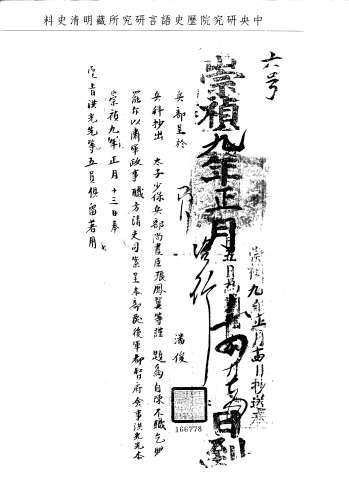 中央研究院歷史語言研究所藏明清史料
六号
崇禎九年正月
日到
崇禎九年正月十四日抄送
潘俊
兵部呈於
兵科抄出太子少保兵部尚書臣張鳳翼等謹題為自陳不職乞賜
罷斥以肅軍政事職方清吏司案呈本部送後軍都督府僉事洪光先奏
崇禎九年正月十三日奉
聖旨洪光先等五員俱留著用
166778